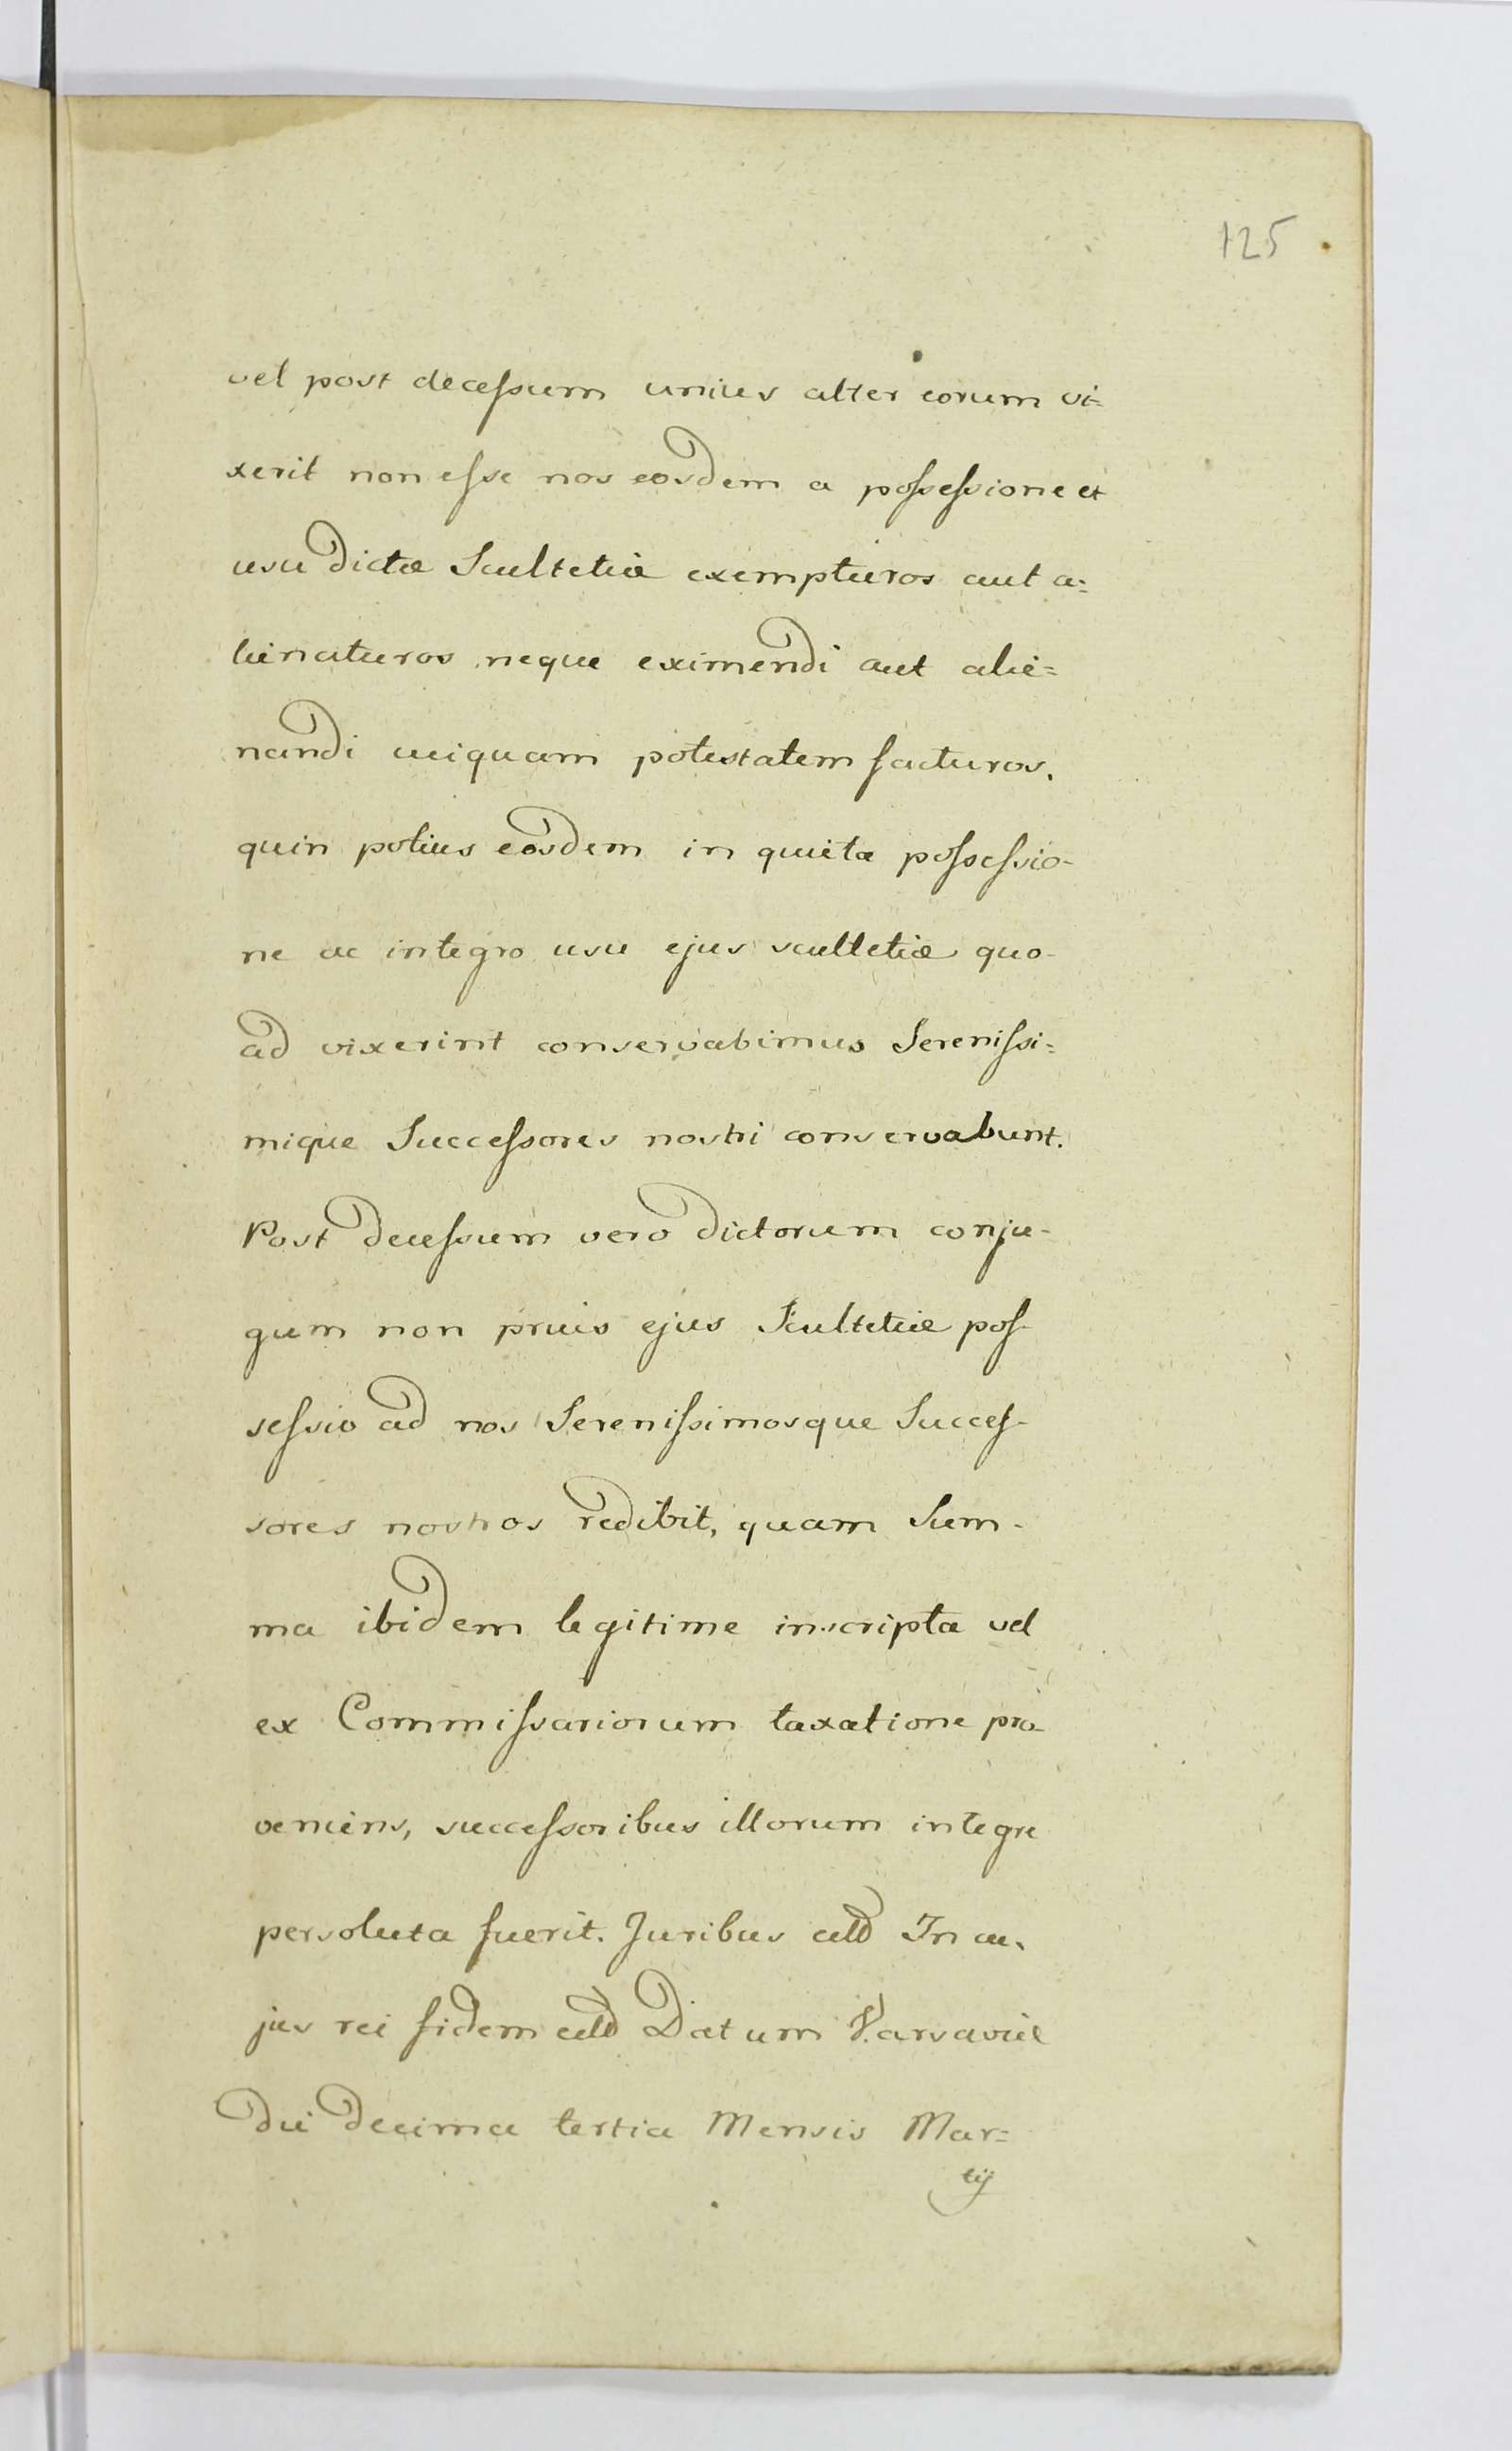 125
vel post decessum unius alter eorum vi=
xerit non esse nos eosdem a possessione et
usu dictæ Scultetiæ exempturos aut a=
lienaturos neque eximendi aut alie=
nandi cuiquam potestatem facturos.
quin potius eosdem in quieta possessio-
ne ac integro usu ejus scultetiæ quo-
ad vixerint conservabimus Serenissi=
mique Successores nostri conservabunt.
Post decessum vero dictorum conju-
gum non prius ejus Scultetiæ pos-
sessio ad nos Serenissimosque Succes-
sores nostros redibit, quam Sum-
ma ibidem legitime inscripta vel
ex Commissariorum taxatione pro
veniens, successoribus illorum integre
persoluta fuerit. Juribus In cu-
jus rei fidem Datum Varsaviæ
die decima tertia Mensis Mar=
tij